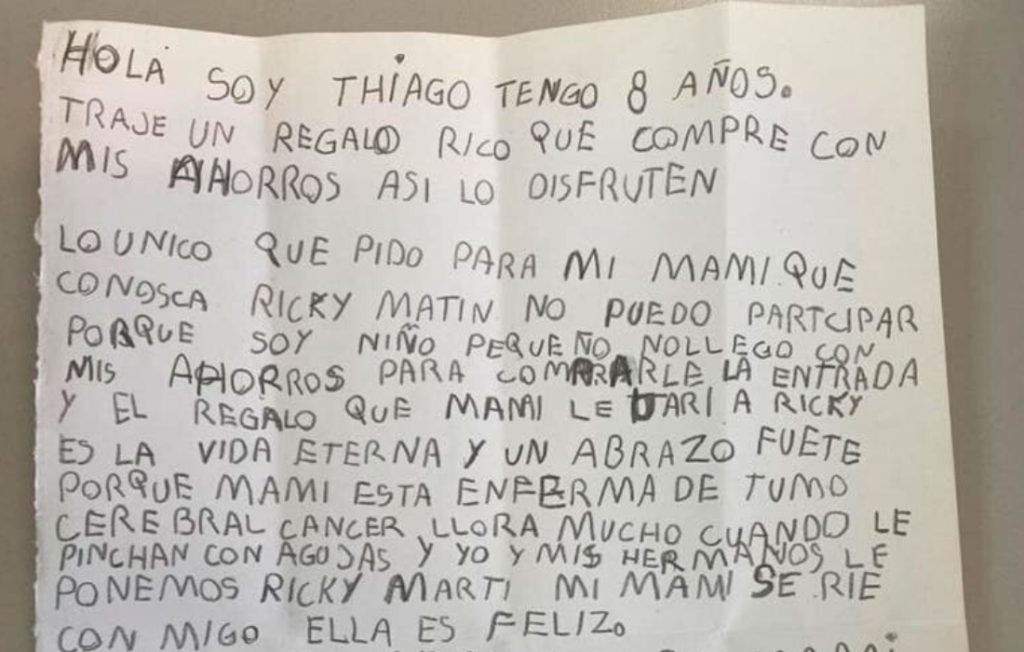 HOLA SOY THIAGO TENGO 8 AÑOS.
TRAJE UN REGALO RICO QUE COMPRE CON
MIS AHORROS ASI LO DISFRUTEN
LO UNICO QUE PIDO PARA MI MAMI. QUE
CONOSCA RICKY MATIN NO PUEDO PARTCIPAR
PORQUE SOY NIÑO PEQUEÑO NOLLEGO CON
MIS AHORROS PARA COMPRARLE LA ENTRADA
Y EL REGALO QUE MAMI LE DARI A RICKY
ES LA VIDA ETERNA Y UN ABRAZO FUETE
PORQUE MAMI ESTA ENFERMA DE TUMO
CEREBRAL CANCER LLORA MUCHO CUANDO LE
PINCHAN CON AGUJAS Y YO Y MIS HERMANOS LE
PONEMOS RICKY MARTI MI MAMI SE RIE
CON MIGO ELLA ES FELIZ.